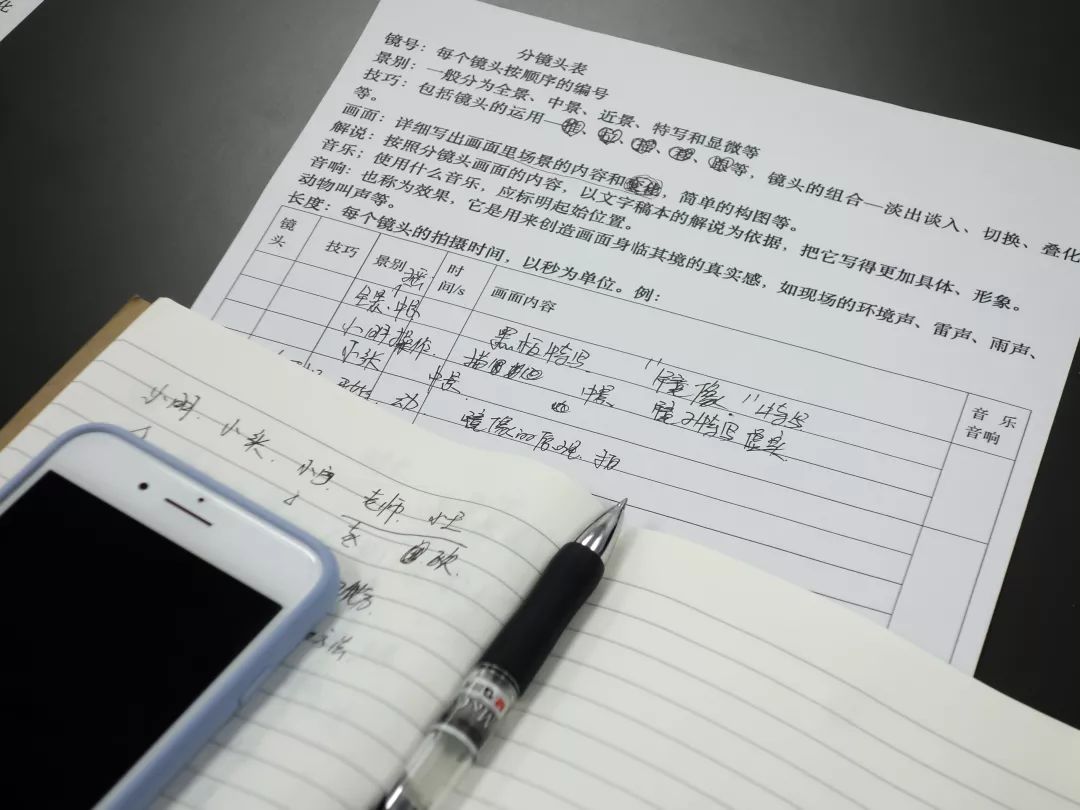 化
分镜头表
镜号：每个镜头按顺序的编号
景别：一般分为全景、中景、近景、特写和显微等
技巧：包括镜头的运用—推、拉、摇、移、跟等，镜头的组合—淡出谈入、切换、叠化
等。
画面：详细写出画面里场景的内容和变化，简单的构图等。
解说：按照分镜头画面的内容，以文字稿本的解说为依据，把它写得更加具体、形象。
音乐；使用什么音乐，应标明起始位置。
音响：也称为效果，它是用来创造画面身临其境的真实感，如现场的环境声、雷声、雨声、
动物叫声等。
长度：每个镜头的拍摄时间，以秒为单位。例：
镜头 技巧 景别 时间/s 画面内容 音乐音响
全景、中景
小明操作. 黑板特写 "镜像"特写
小张 中景. 中景
镜像的原理
小明. 小张.
老师.